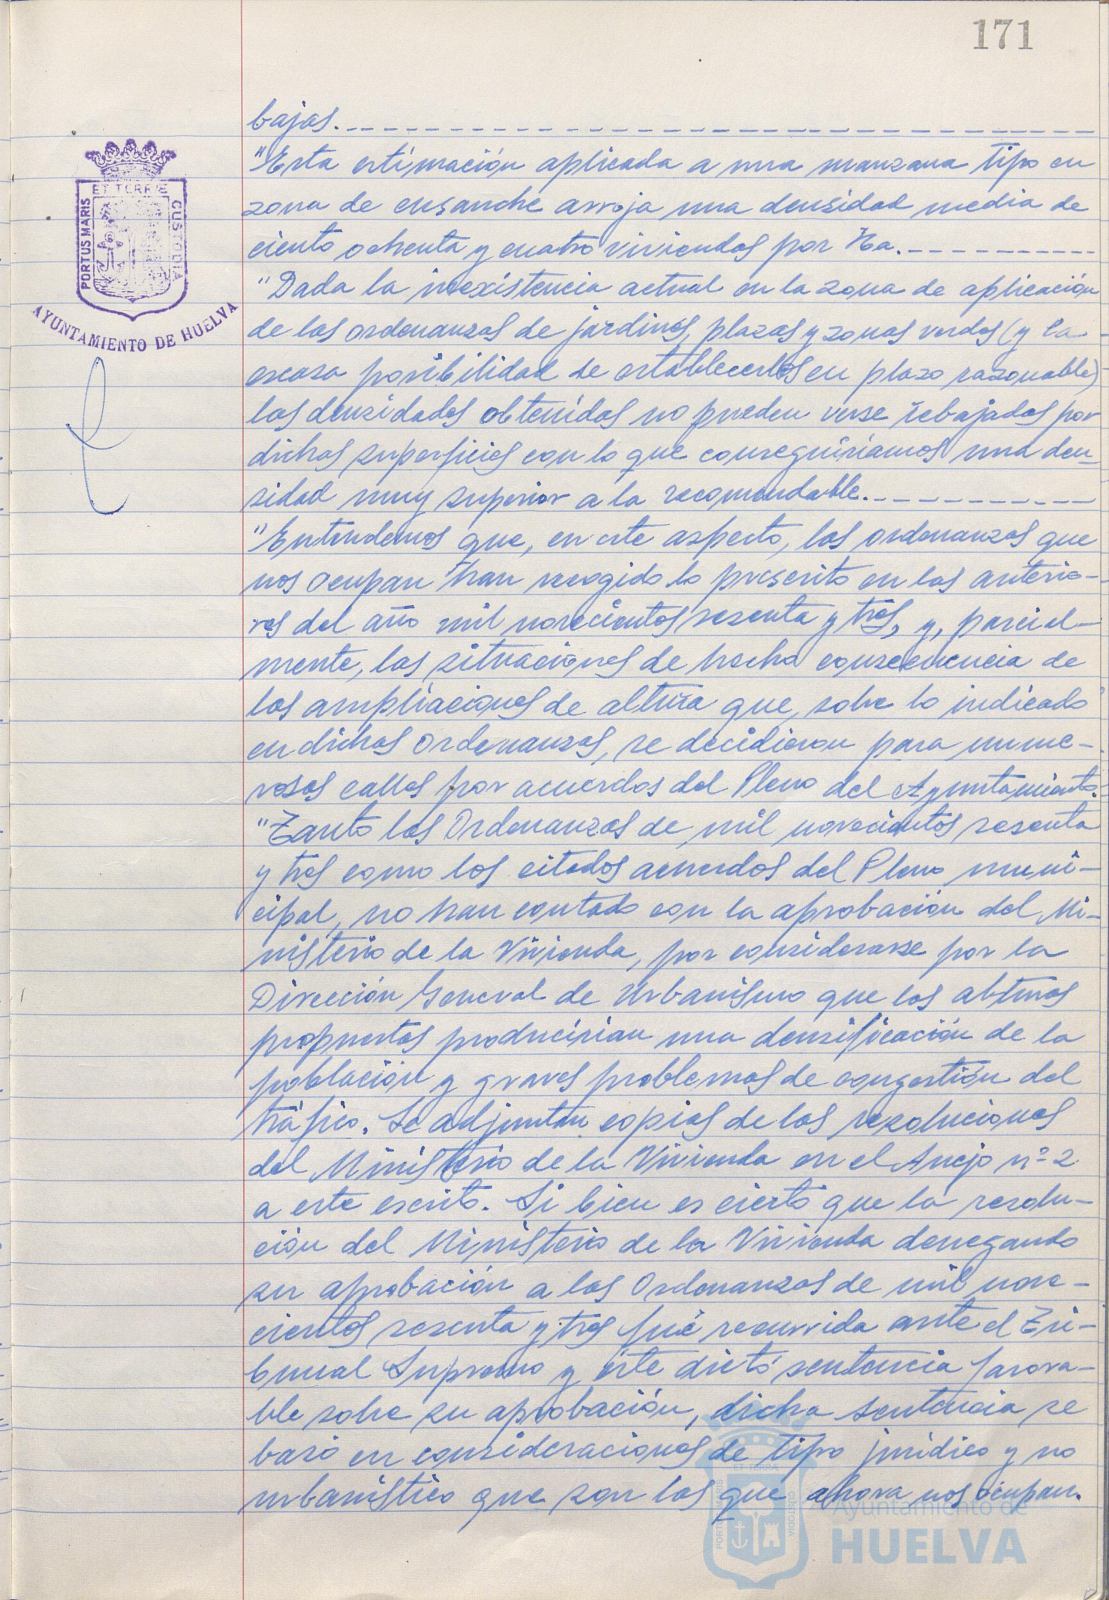 171
bajas.
"Esta estimación aplicada a una manzana tipo en
zona de ensanche arroja una densidad media de
ciento ochenta y cuatro viviendas por Ha.
"Dada la inexistencia actual en la zona de aplicación
de las ordenanzas de jardines, plazas y zonas verdes (y la
escasa posibilidad de establecerlos en plazo razonable)
las densidades obtenidas no pueden verse rebajadas por
dichas superficies con lo que conseguiríamos una den-
sidad muy superior a la recomendable.
"Entendemos que, en este aspecto, las ordenanzas que
nos ocupan han recogido lo prescrito en las anterio-
res del año mil novecientos sesenta y tres, y, parcial-
mente, las situaciones de hecho consecuencia de
las ampliaciones de altura que, sobre lo indicado
en dichas Ordenanzas, se decidieron para nume-
rosas calles por acuerdos del Pleno del Ayuntamiento.
"Tanto las Ordenanzas de mil novecientos sesenta
y tres como los citados acuerdos del Pleno muni-
cipal, no han contado con la aprobación del Mi-
nisterio de la Vivienda, por considerarse por la
Dirección General de Urbanismo que las alturas
propuestas producirían una densificación de la
población y graves problemas de congestión del
tráfico. Se adjuntan copias de las resoluciones
del Ministerio de la Vivienda en el Anejo nº 2
a este escrito. Si bien es cierto que la resolu-
ción del Ministerio de la Vivienda denegando
su aprobación a las Ordenanzas de mil nove-
cientos sesenta y tres fué recurrida ante el Tri-
bunal Supremo y éste dictó sentencia favora-
ble sobre su aprobación, dicha sentencia se
basó en consideraciones de tipo jurídico y no
urbanístico que son las que ahora nos ocupan.
PORTUS MARIS ET TERRÆ CUSTODIA
AYUNTAMIENTO DE HUELVA
Ayuntamiento de
HUELVA